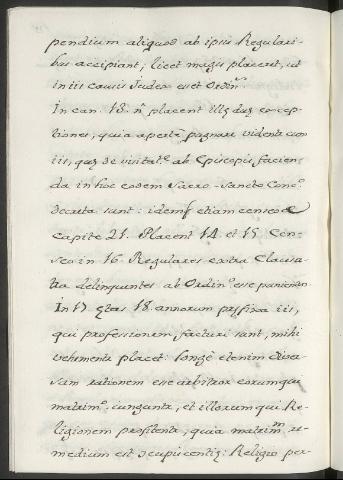 pendium aliquod ab ipsis Regulari-
bus accipiant; licet magis placeret, ut
in iis causis Judex esset Ordin.s
In can. 18. n. placent illę duę excep-
tiones, quia apertè pugnare videntur cum
iis, quę de visitat.e ab Episcopis facien-
da in hoc eodem Sacro-sancto Conc.o
decreta sunt: idemq etiam censeo de
Capite 21. Placent 14 et 15. Cen-
seo in 16. Regulares extra Claust-
ra delinquentes ab Ordin.o esse puniendos
In 17. ętas 18. annorum pręfixa iis,
qui professionem facturi sunt, mihi
vehementer placet: longè etenim diver-
sam rationem esse arbitror eorum qui
matrim.o iungantur, et illorum qui Re-
ligionem profitentur, quia matrim.m re-
medium est concupiscentię: Religio per-